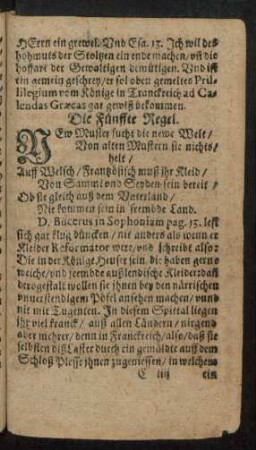 HErrn ein grewel. Vnd Esa. 13. Jch wil des
hohmuts der Stoltzen ein ende machen/ vñ die
hoffart der Gewaltigen demütigen. Vnd ist
ein gemein geschrey/ er sol oben gemeltes Pri-
uilegium vom Könige in Franckreich ad Ca-
lendas Græcas gar gewiß bekommen.
Die Fünffte Regel.
NEw Muster sucht die newe Welt/
Von alten Mustern sie nichts
helt/
Auff Welsch/ Frantzösisch muß ihr Kleid/
Von Sammt vnd Seyden sein bereit/
Ob sie gleich auß dem Vaterland/
Nie kommen sein in frembde Land.
D. Bucerus in Sophonium pag. 15. lest
sich gar klug düncken/ nie anders als wenn er
Kleider Reformator were/ vnd schreibt also:
Die in der Könige Heuser sein/ die haben gerne
weiche/ vnd frembde außlendische Kleider: daß
derogestalt wollen sie ihnen bey den närrischen
vnuerstendigem Pöfel ansehen machen/ vnnd
nit mit Tugenten. In diesem Spittal liegen
ihr viel kranck/ auß allen Ländern/ nirgend
aber mehrer/ denn in Franckreich/ also/ daß sie
selbsten diß Laster durch ein gemäldte auff dem
Schloß Plesse ihnen zugemessen/ in welchem
C iiij ein